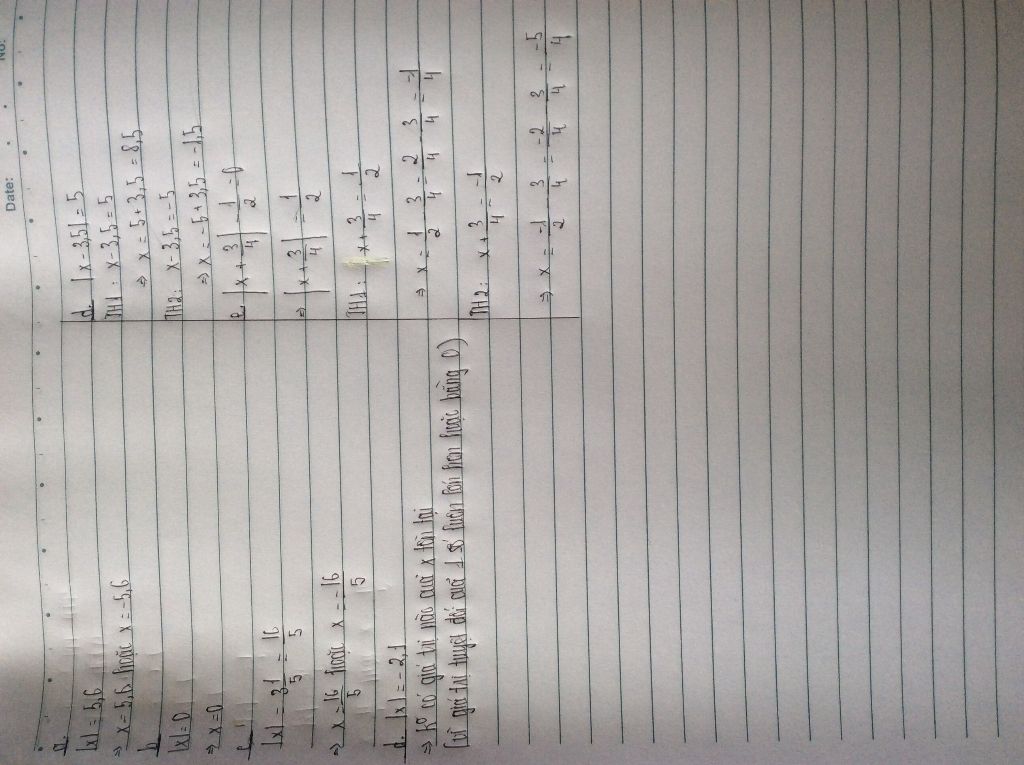 No:
Date:
a.
|x| = 5,6
⇒ x = 5,6 hoặc x = -5,6
b.
|x| = 0
⇒ x = 0
c.
|x| = 3 1/5 = 16/5
⇒ x = 16/5 hoặc x = -16/5
d. |x| = -2,1
⇒ k° có giá trị nào của x tồn tại
(vì giá trị tuyệt đối của 1 số luôn lớn hơn hoặc bằng 0)
d. |x - 3,5| = 5
TH1: x - 3,5 = 5
⇒ x = 5 + 3,5 = 8,5
TH2: x - 3,5 = -5
⇒ x = -5 + 3,5 = -1,5
e. |x + 3/4| - 1/2 = 0
⇒ |x + 3/4| = 1/2
TH1: x + 3/4 = 1/2
⇒ x = 1/2 - 3/4 = 2/4 - 3/4 = -1/4
TH2: x + 3/4 = -1/2
⇒ x = -1/2 - 3/4 = -2/4 - 3/4 = -5/4